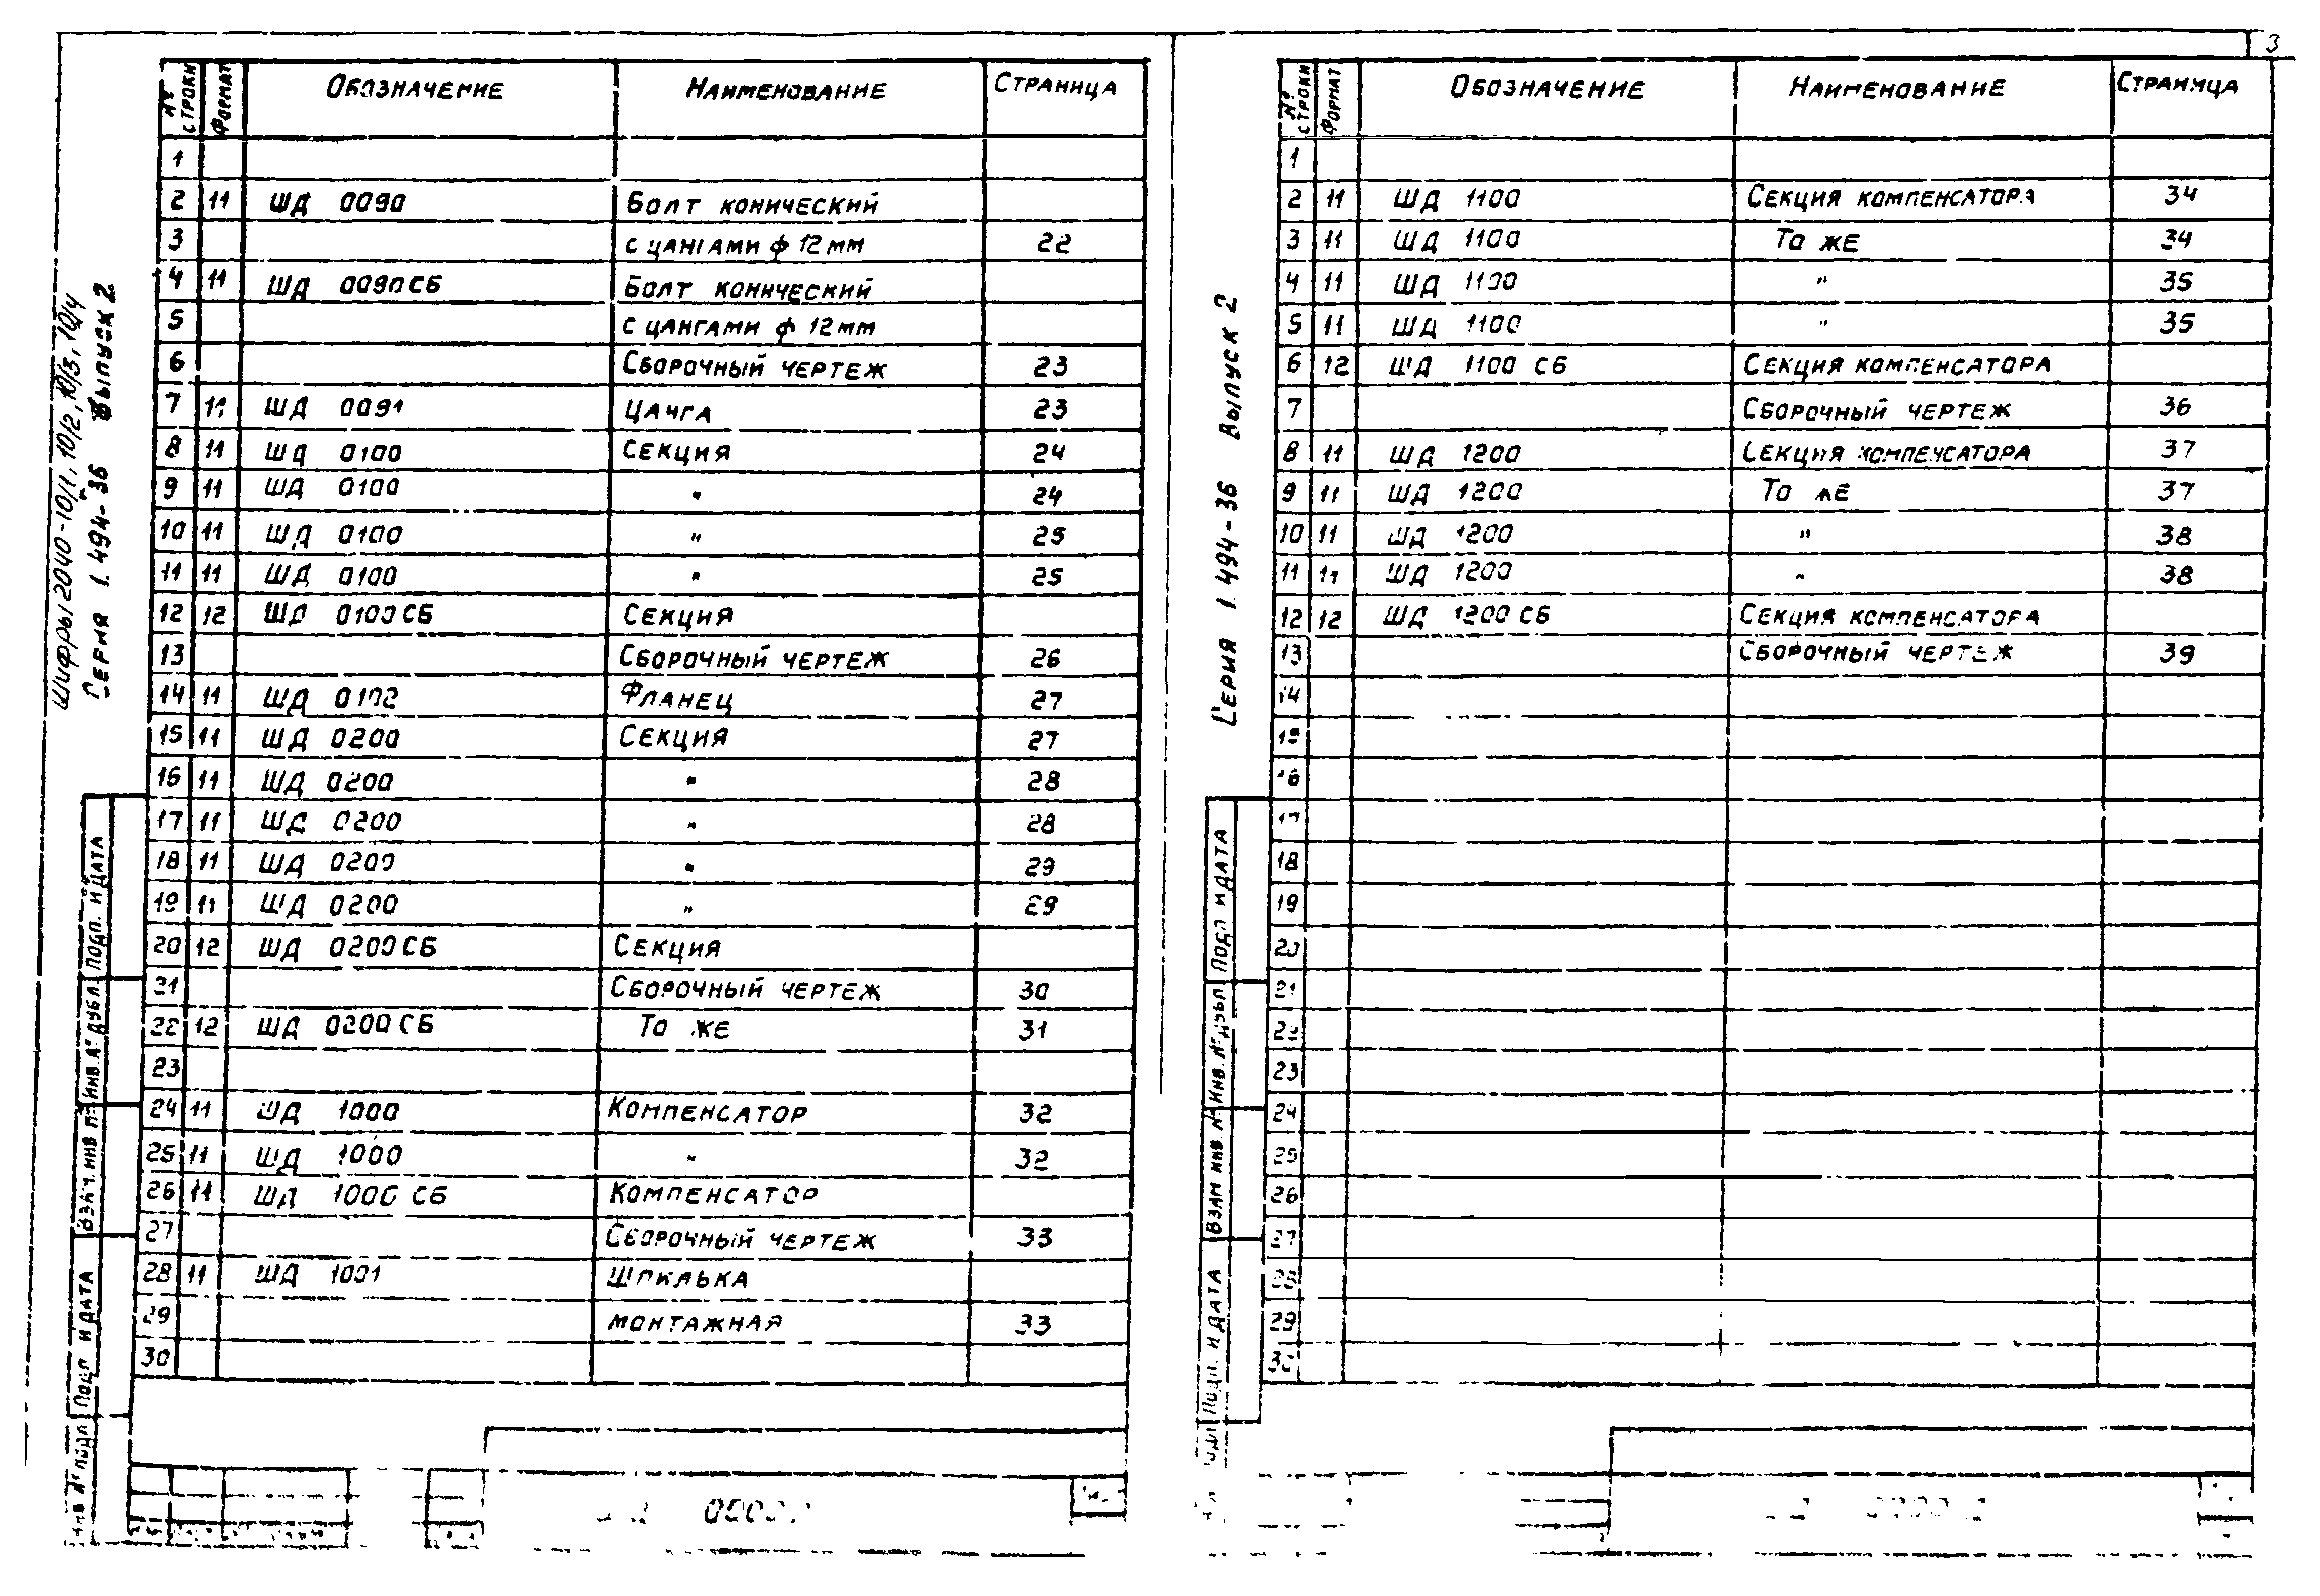 3
Шифры 2040-10/1, 10/2, 10/3, 10/4
Серия 1.494-36 Выпуск 2
№ строки Формат Обозначение Наименование Страница
1
2 11 ШД 0090 Болт конический
3 с цангами ф 12мм 22
4 11 ШД 0090СБ Болт конический
5 с цангами ф 12мм
6 Сборочный чертеж 23
7 11 ШД 0091 Цанга 23
8 11 ШД 0100 Секция 24
9 11 ШД 0100 " 24
10 11 ШД 0100 " 25
11 11 ШД 0100 " 25
12 12 ШД 0100СБ Секция
13 Сборочный чертеж 26
14 11 ШД 0102 Фланец 27
15 11 ШД 0200 Секция 27
16 11 ШД 0200 " 28
17 11 ШД 0200 " 28
18 11 ШД 0200 " 29
19 11 ШД 0200 " 29
20 12 ШД 0200СБ Секция
21 Сборочный чертеж 30
22 12 ШД 0200СБ То же 31
23
24 11 ШД 1000 Компенсатор 32
25 11 ШД 1000 " 32
26 11 ШД 1000 СБ Компенсатор
27 Сборочный чертеж 33
28 11 ШД 1001 Шпилька
29 монтажная 33
30
Подп. и дата
Инв. № дубл.
Взам. инв №
Подп. и дата
Инв № подл
Серия 1.494-36 Выпуск 2
№ строки Формат Обозначение Наименование Страница
1
2 11 ШД 1100 Секция компенсатора 34
3 11 ШД 1100 То же 34
4 11 ШД 1100 " 35
5 11 ШД 1100 " 35
6 12 ШД 1100 СБ Секция компенсатора
7 Сборочный чертеж 36
8 11 ШД 1200 Секция компенсатора 37
9 11 ШД 1200 То же 37
10 11 ШД 1200 " 38
11 11 ШД 1200 " 38
12 12 ШД 1200 СБ Секция компенсатора
13 Сборочный чертеж 39
14
15
16
17
18
19
20
21
22
23
24
25
26
27
28
29
30
Подп и дата
Инв. № дубл
Взам инв. №
Подп. и дата